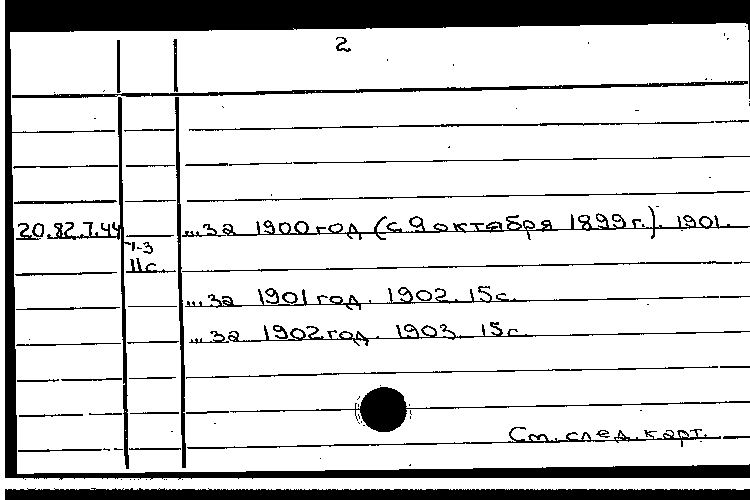 2
20.82.7.44 ...за 1900 год (с 9 октября 1899 г.). 1901.
1-3
11 с.
...за 1901 год. 1902. 15 с.
...за 1902 год. 1903. 15 с.
См. след. карт.